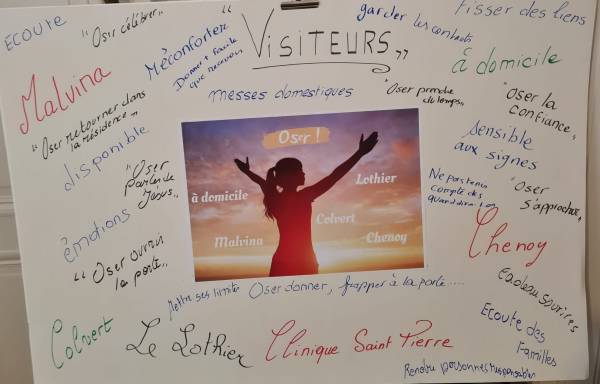 ECOUTE
"Oser célébrer"
"VISITEURS"
garder les contacts
Tisser des liens
Malvina
Réconforter
Donner + facile
que recevoir
messes domestiques
"Oser prendre
du temps"
à domicile
"Oser la
confiance"
"Oser retourner dans
la résidence"
disponible
"Oser
parler de
Jésus"
sensible
aux signes
Ne pas tenir
compte des
"Oser
s'approcher"
Oser !
à domicile
Lothier
Calvert
Malvina
Chenoy
émotions
"Oser ouvrir
la porte"
Chenoy
Cadeau sourires
Mettre ses limites
Oser donner, frapper à la porte....
Calvert
Le Lothier
Clinique Saint Pierre
Ecoute des
Familles
Rendre personnes responsables